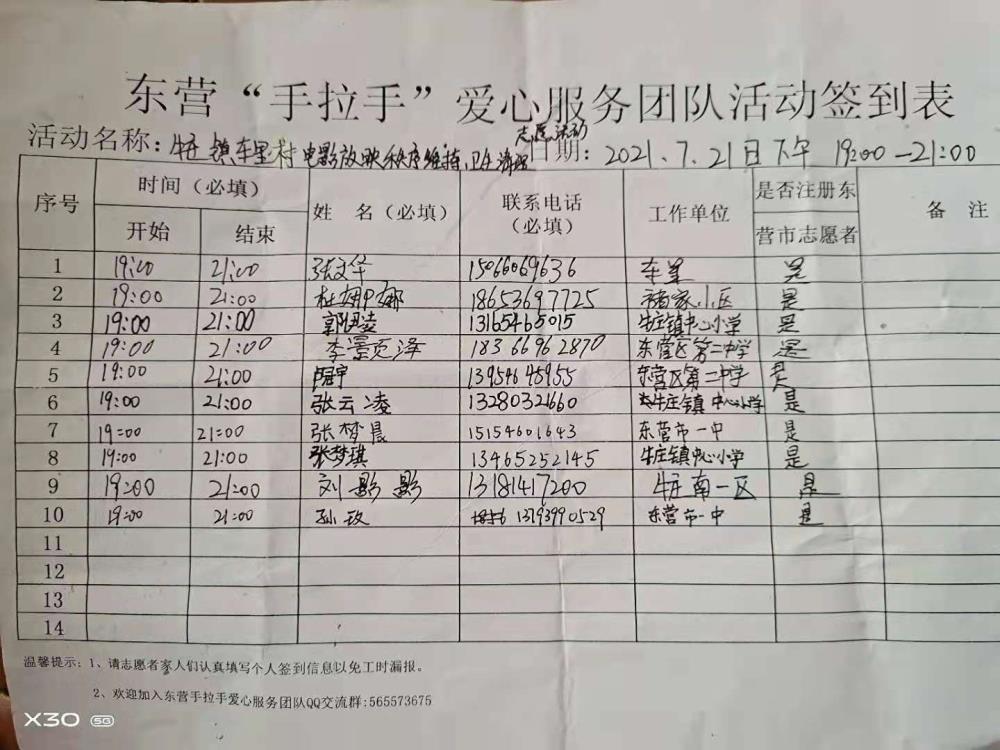 东营“手拉手”爱心服务团队活动签到表
志愿活动
活动名称：牛庄镇车里村电影放映秩序维持、卫生清理 日期：2021.7.21日下午 19:00-21:00
序号 时间（必填） 姓 名（必填） 联系电话（必填） 工作单位 是否注册东营市志愿者 备 注
开始 结束
1 19:00 21:00 张文华 15066069636 车里 是
2 19:00 21:00 杜姗娜 18653697725 褚家小区 是
3 19:00 21:00 郭凌 13165465015 牛庄镇中心小学 是
4 19:00 21:00 李景泽 18366962870 东营区第二中学 是
5 19:00 21:00 宇 13954645955 东营区第二中学 是
6 19:00 21:00 张云凌 13280321660 牛庄镇中心小学 是
7 19:00 21:00 张梦晨 15154601643 东营市一中 是
8 19:00 21:00 张梦琪 13465252145 牛庄镇中心小学 是
9 19:00 21:00 刘影影 13181417200 牛庄南一区 是
10 19:00 21:00 孙玫 13793990529 东营市一中 是
11
12
13
14
温馨提示：1、请志愿者家人们认真填写个人签到信息以免工时漏报。
2、欢迎加入东营手拉手爱心服务团队QQ交流群:565573675
X30 5G